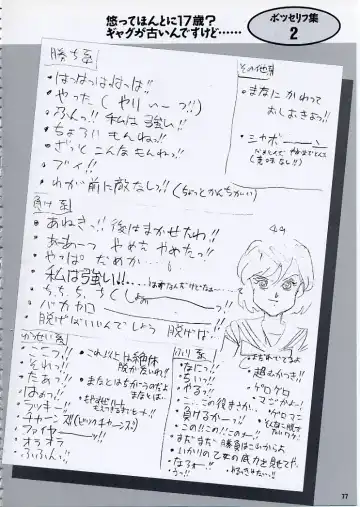 悠ってほんとに17歳?
ギャグが古いんですけど……
ボツセリフ集
2
勝ち系
・はっはっはっはっは!!
・やった(やりぃーっ!!)
・ふんっ!! 私は強い!!
・ちょろいもんねっ!!
・ざっとこんなもんねっ!!
・ブイ!!
・わが前に敵なしっ!!(ちょっとかんちがい)
その他系
・まなにかわって
おしおきよっ!!
・シャボーーン
(意味なし!!)
負け系
・あねきっ!! 後はまかせたわ!!
・あーあーっ やめた やめたっ!!
・やっぱ だめか…
・私は強い!!…
・バカヤロー
・脱げばいいんでしょう 脱げば!!
かっせい系
・ここっ!!
・それっ!!
・たあっ!!
・はぁっ!!
・ラッキー!!
・チャーンス!!
・ファイヤーーッ!!
・オラオラ
・ふふんっ!!
・これ以上は絶体
脱がないわ!!
・まなとはちがうのだよ
まなとは…
ふり系
・なにっ!!
・ちいっ!!
・やるっ!!
・こ…この役まさか…
・負けるかーっ!!
・この!!この!!このォー!!
・まだまだ 勝負はこれからよ
・いかりの乙女の威力を見せてや
・なろォー!!
・うっ!!
・よだれでてるよ
・超むかつき!!
・ゲロゲロ
・マジかよー!
・ゲロマニ
77